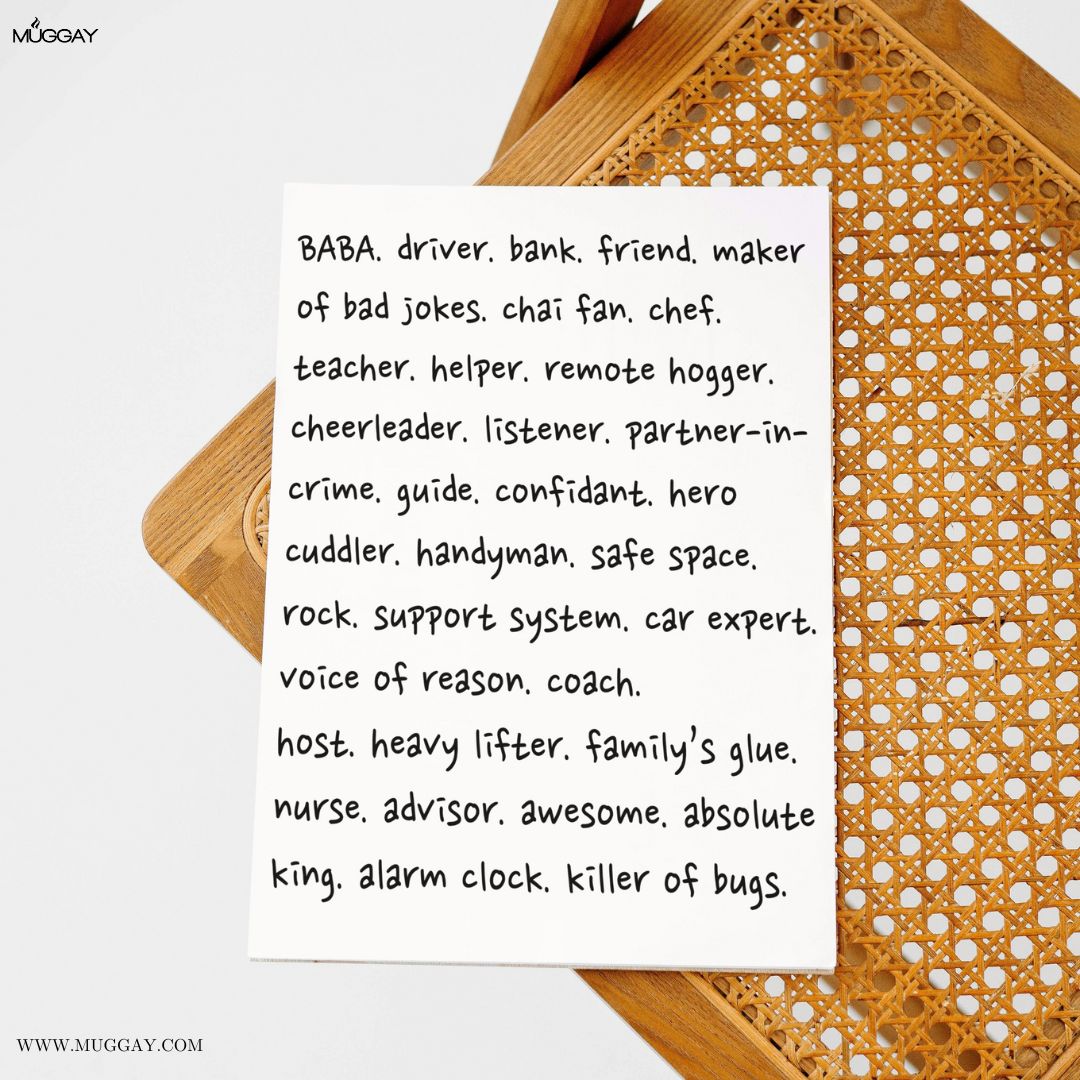 MUGGAY
BABA. driver. bank. friend. maker
of bad jokes. chai fan. chef.
teacher. helper. remote hogger.
cheerleader. listener. partner-in-
crime. guide. confidant. hero
cuddler. handyman. safe space.
rock. support system. car expert.
voice of reason. coach.
host. heavy lifter. family's glue.
nurse. advisor. awesome. absolute
king. alarm clock. killer of bugs.
WWW.MUGGAY.COM